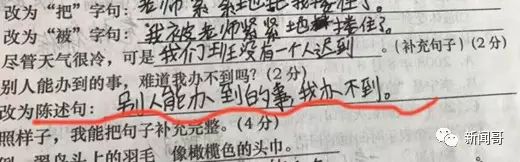 改为“把”字句:老师紧紧地把我搂住了。
改为“被”字句:我被老师紧紧地搂住了。
尽管天气很冷,可是我们班没有一个人迟到。(补充句子)(2分)
别人能办到的事,难道我办不到吗?(2分)
改为陈述句:别人能办到的事我办不到。
照样子,我能把句子补充完整。(4分)
例:翠鸟头上的羽毛 像橄榄色的头巾。
新闻哥